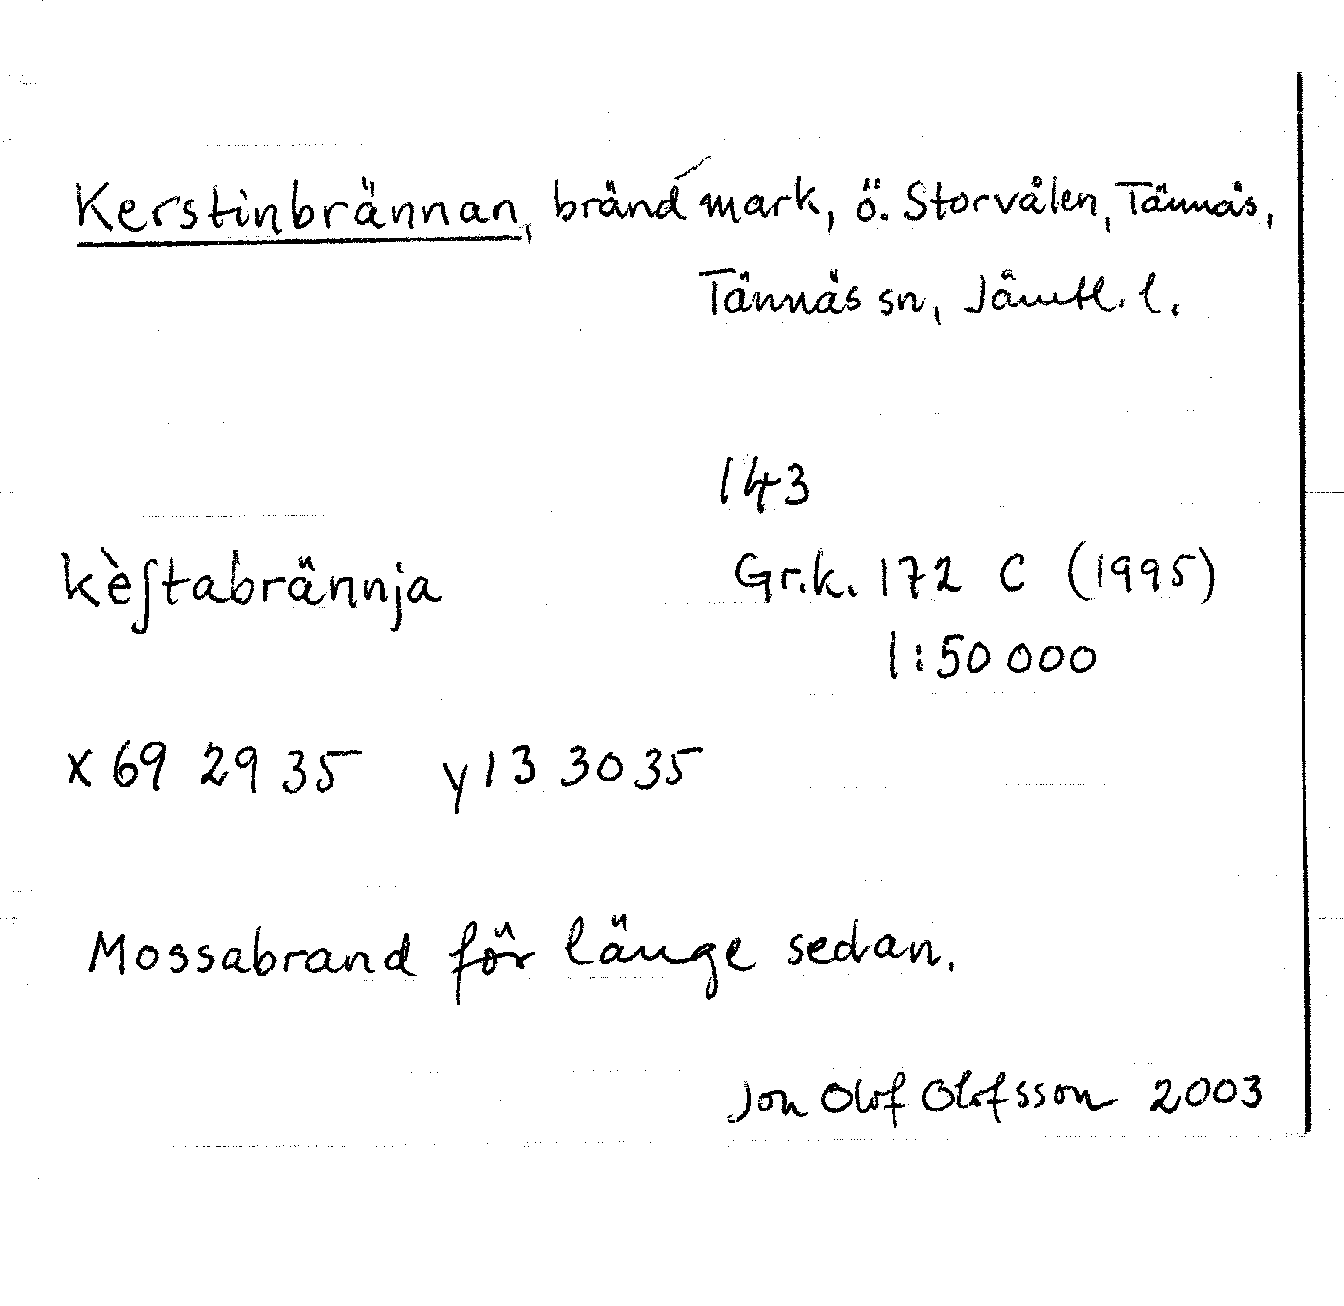 Kerstinbrännan, bränd mark, ö. Storvålen, Tännäs,
Tännäs sn, Jämtl. l.
143
kèʃtabrännja Gr.k. 172 C (1995)
1:50 000
x 69 29 35 y 13 30 35
Mossabrand för länge sedan.
Jon Olof Olofsson 2003